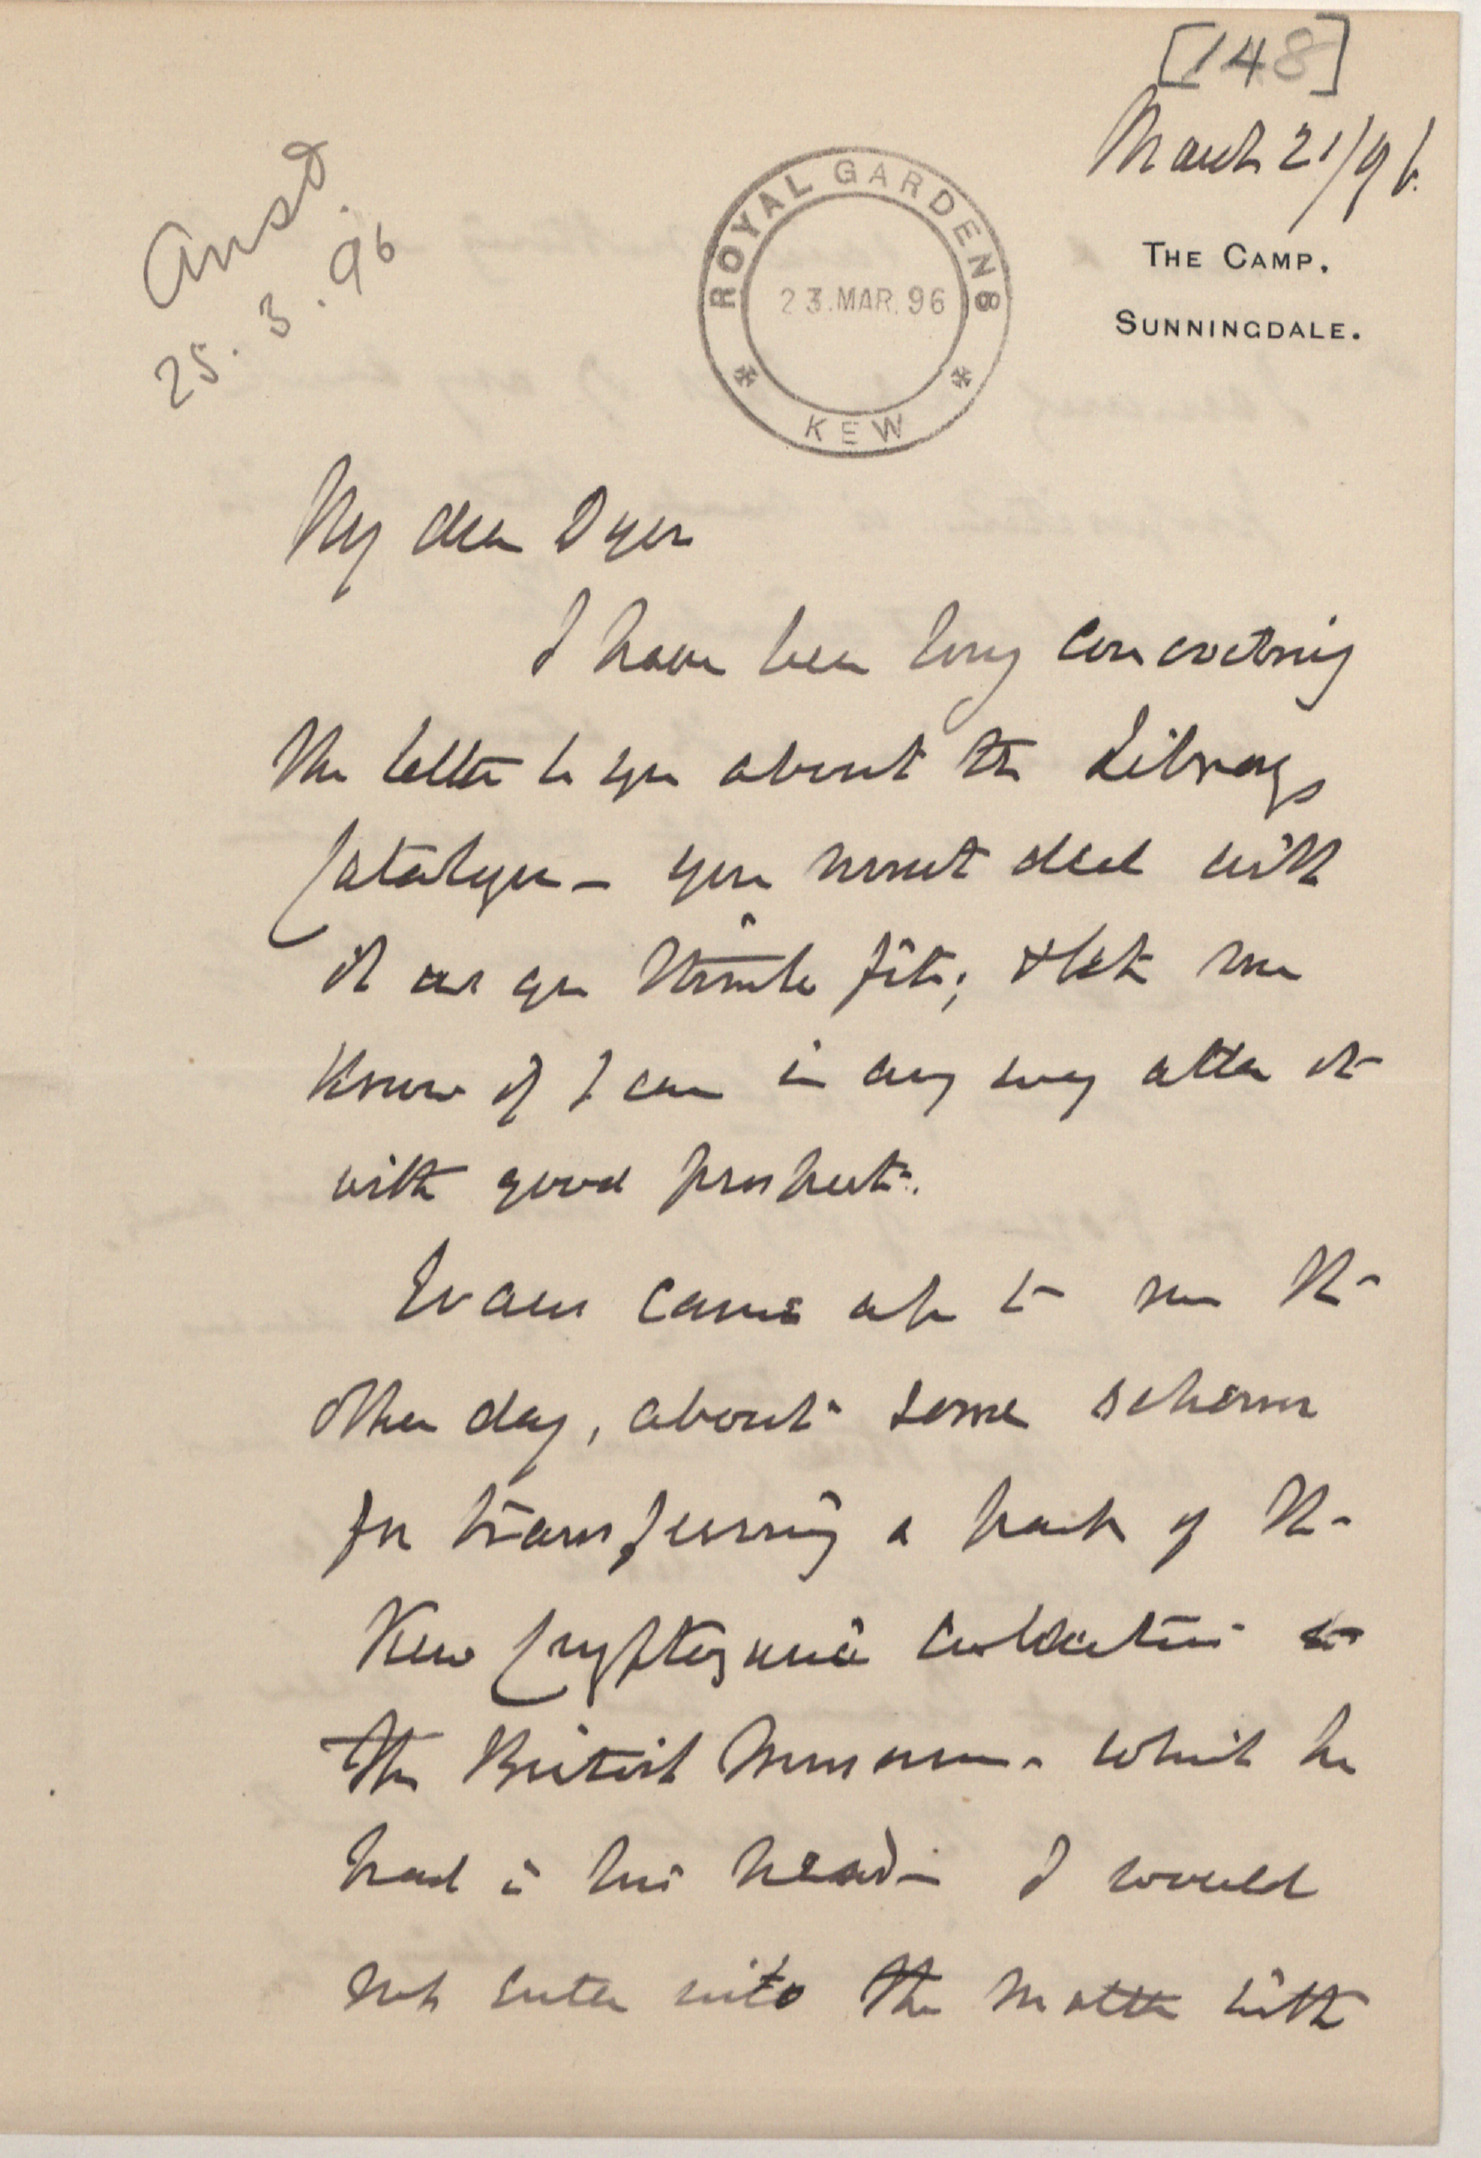 [148]
March 21/96.
Ansd.
25.3.96
ROYAL GARDENS
23.MAR.96
KEW
THE CAMP,
SUNNINGDALE.
My dear Dyer
I have been long concocting
the letter to you about the Library
Catalogue — you must deal with
it as you think fit; & let me
know if I can in any way alter it
with good prospect.
Evans came up to me the
other day, about some scheme
for transferring a part of the
Kew Cryptogamic collection to
the British Museum - which he
had in his head — I would
not enter into the matter with